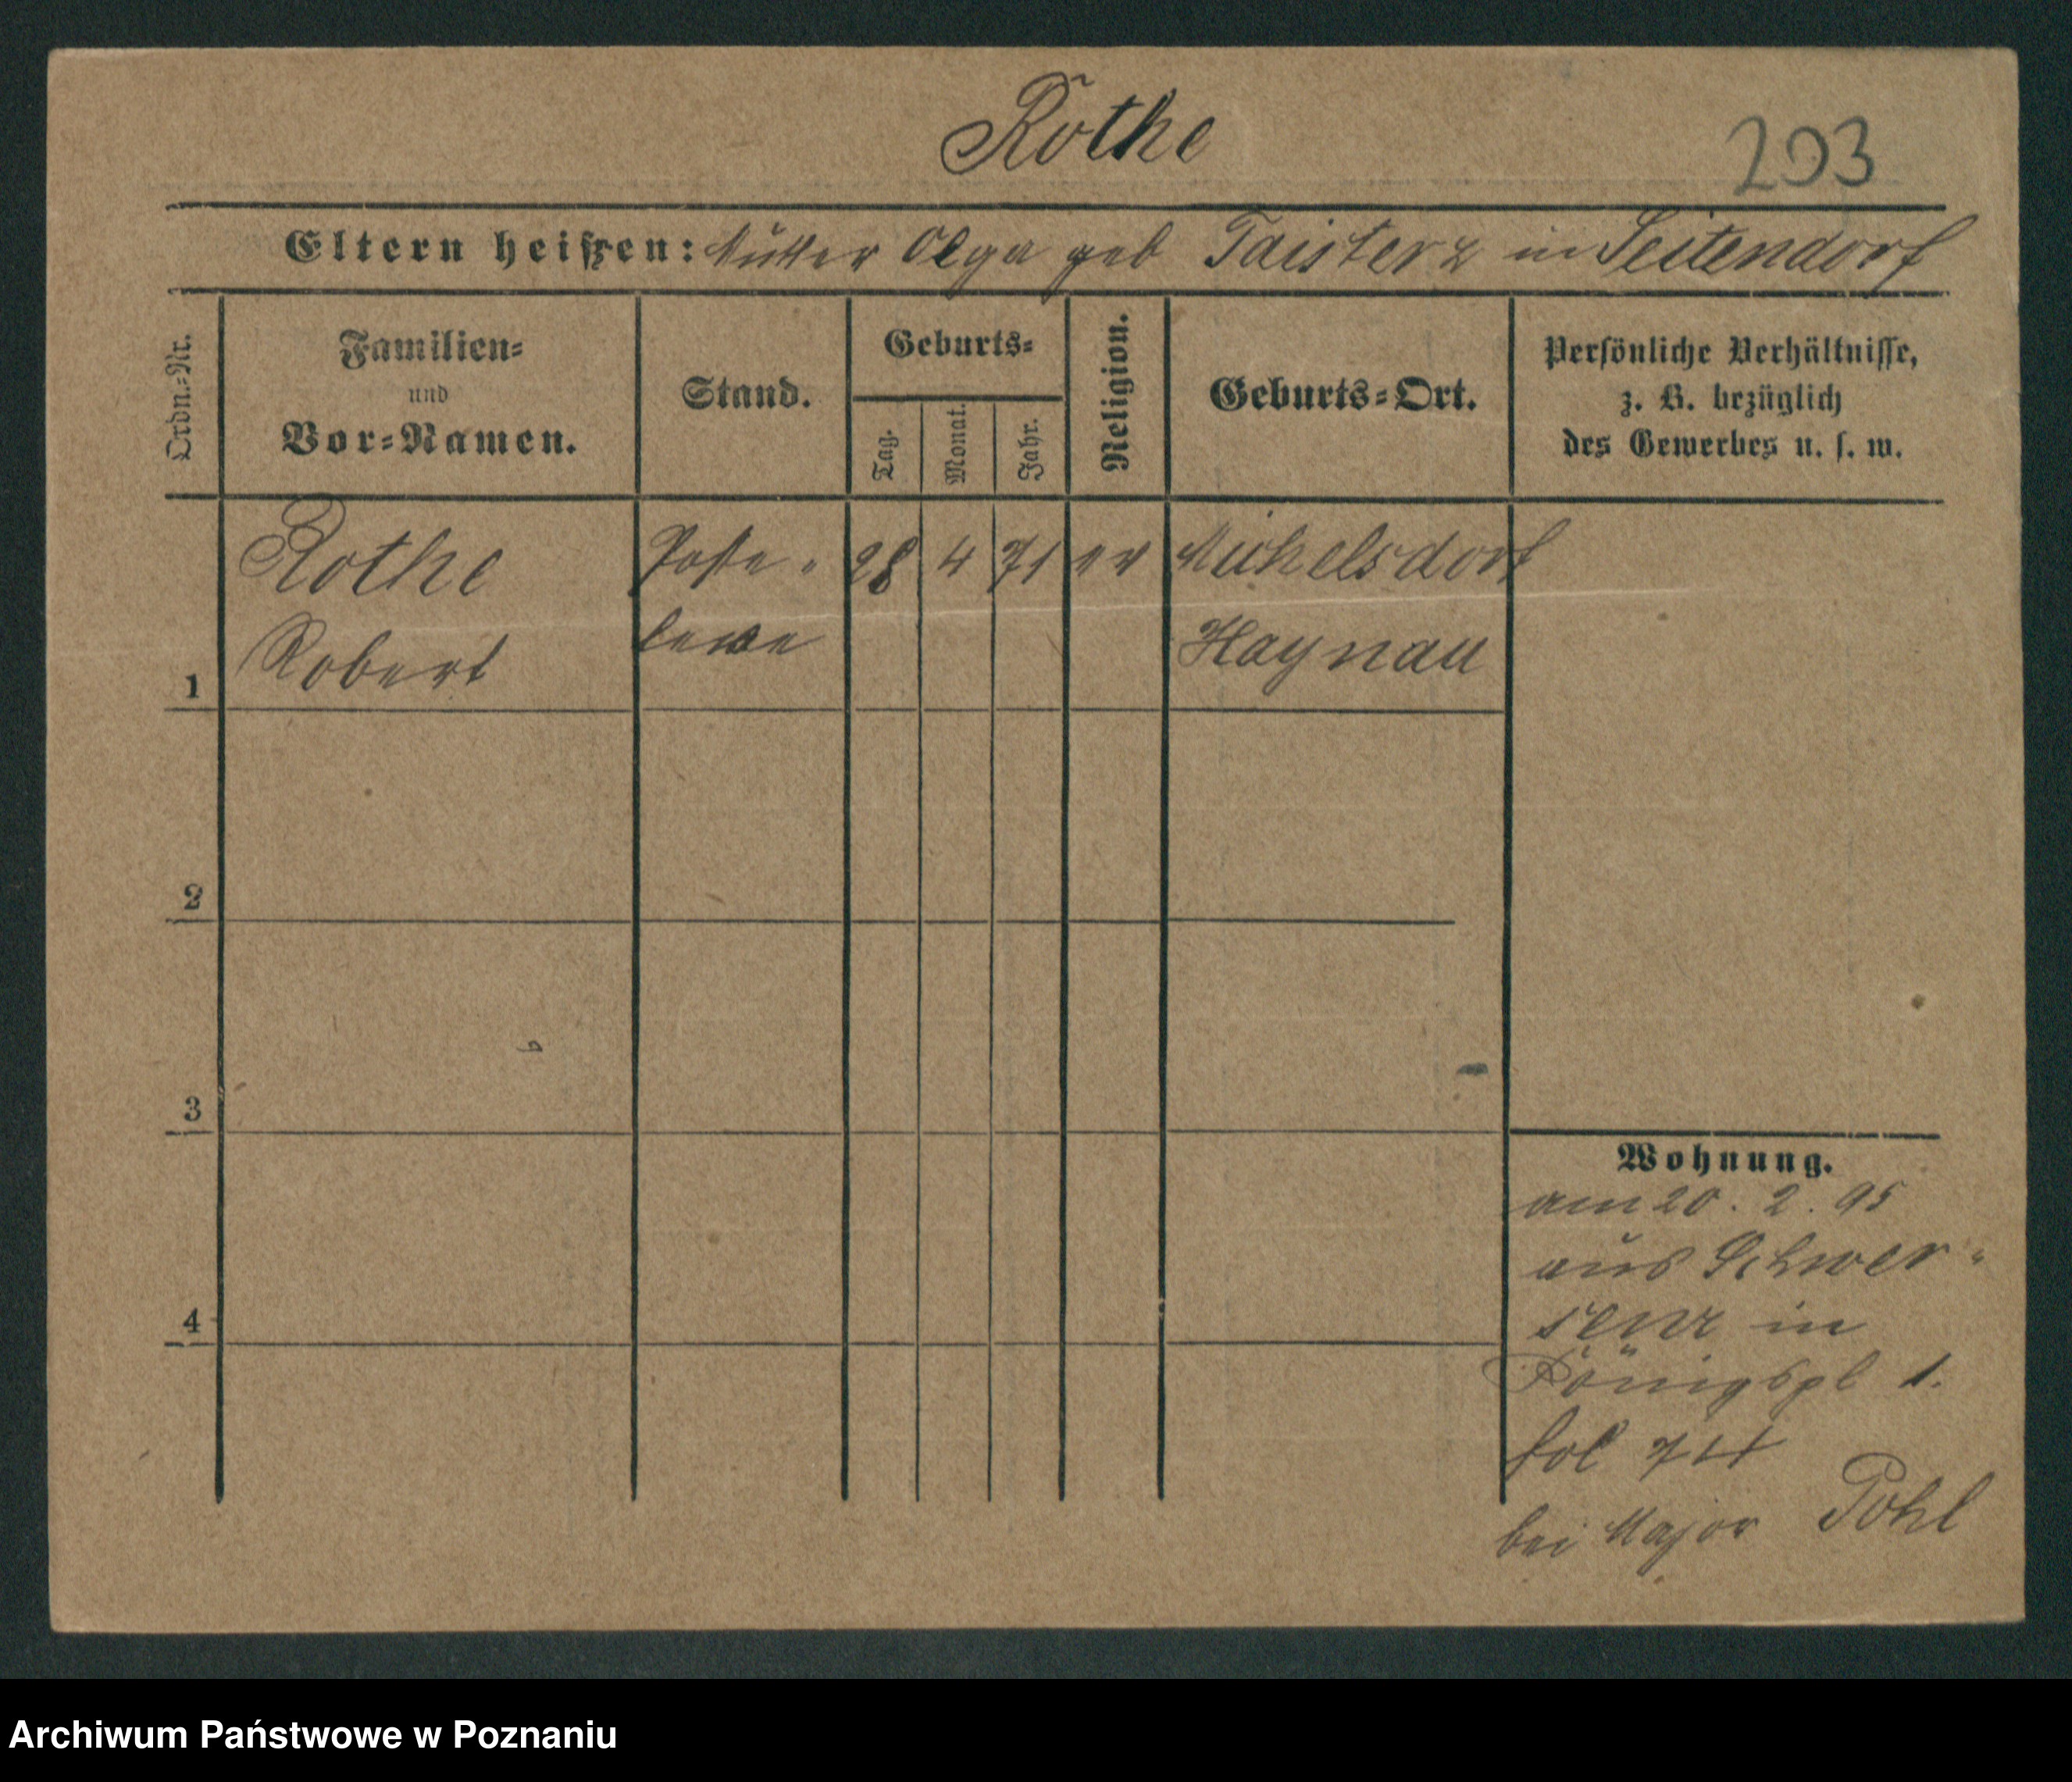 Rothe
203
Eltern heißen: Mutter Olga geb Taisterz in Seitendorf
Ordn.-Nr.
Familien-
und
Vor-Namen.
Stand.
Geburts-
Tag.
Monat.
Jahr.
Religion.
Geburts-Ort.
Persönliche Verhältnisse,
z. B. bezüglich
des Gewerbes u. s. w.
Rothe 28 4 71 ev Michelsdorf
Robert Haynau
1
2
3
4
Wohnung.
am 20. 2. 95
aus Schwer-
senz in
Königspl 1.
fol
bei Major Pohl
Archiwum Państwowe w Poznaniu